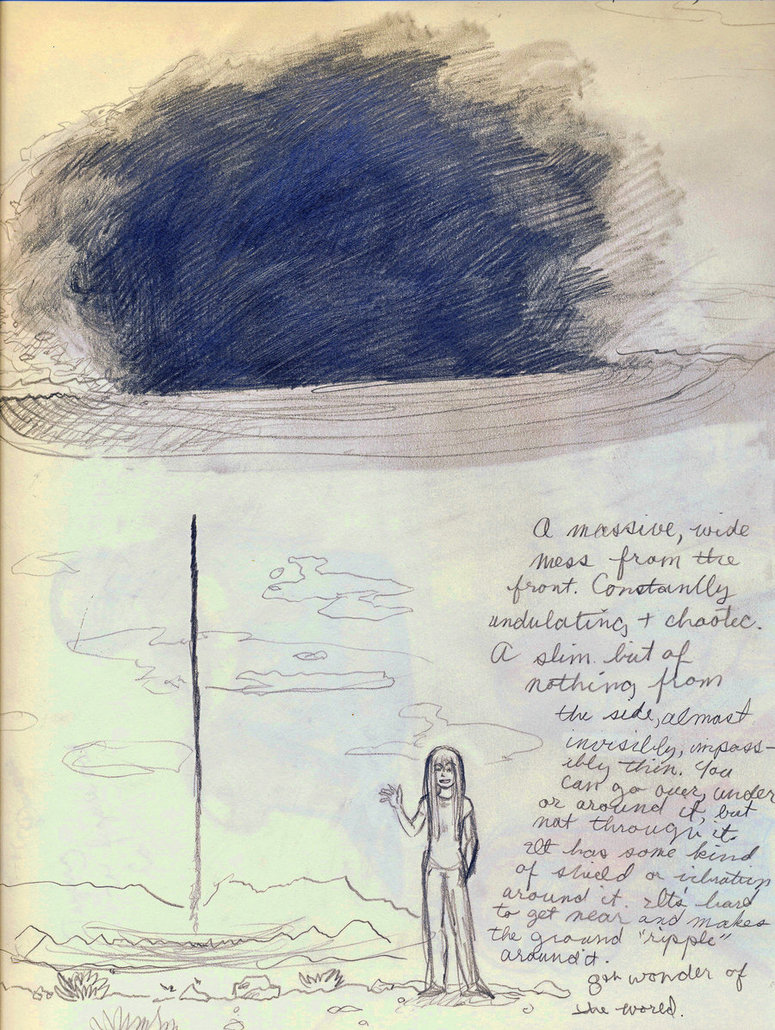 A massive, wide
mess from the
front. Constantly
undulating + chaotic.
A slim bit of
nothing from
the side, almost
invisibly, imposs-
ibly thin. You
can go over, under
or around it, but
not through it.
It has some kind
of shield or vibration
around it. It's hard
to get near and makes
the ground "ripple"
around it.
8th wonder of
the world.